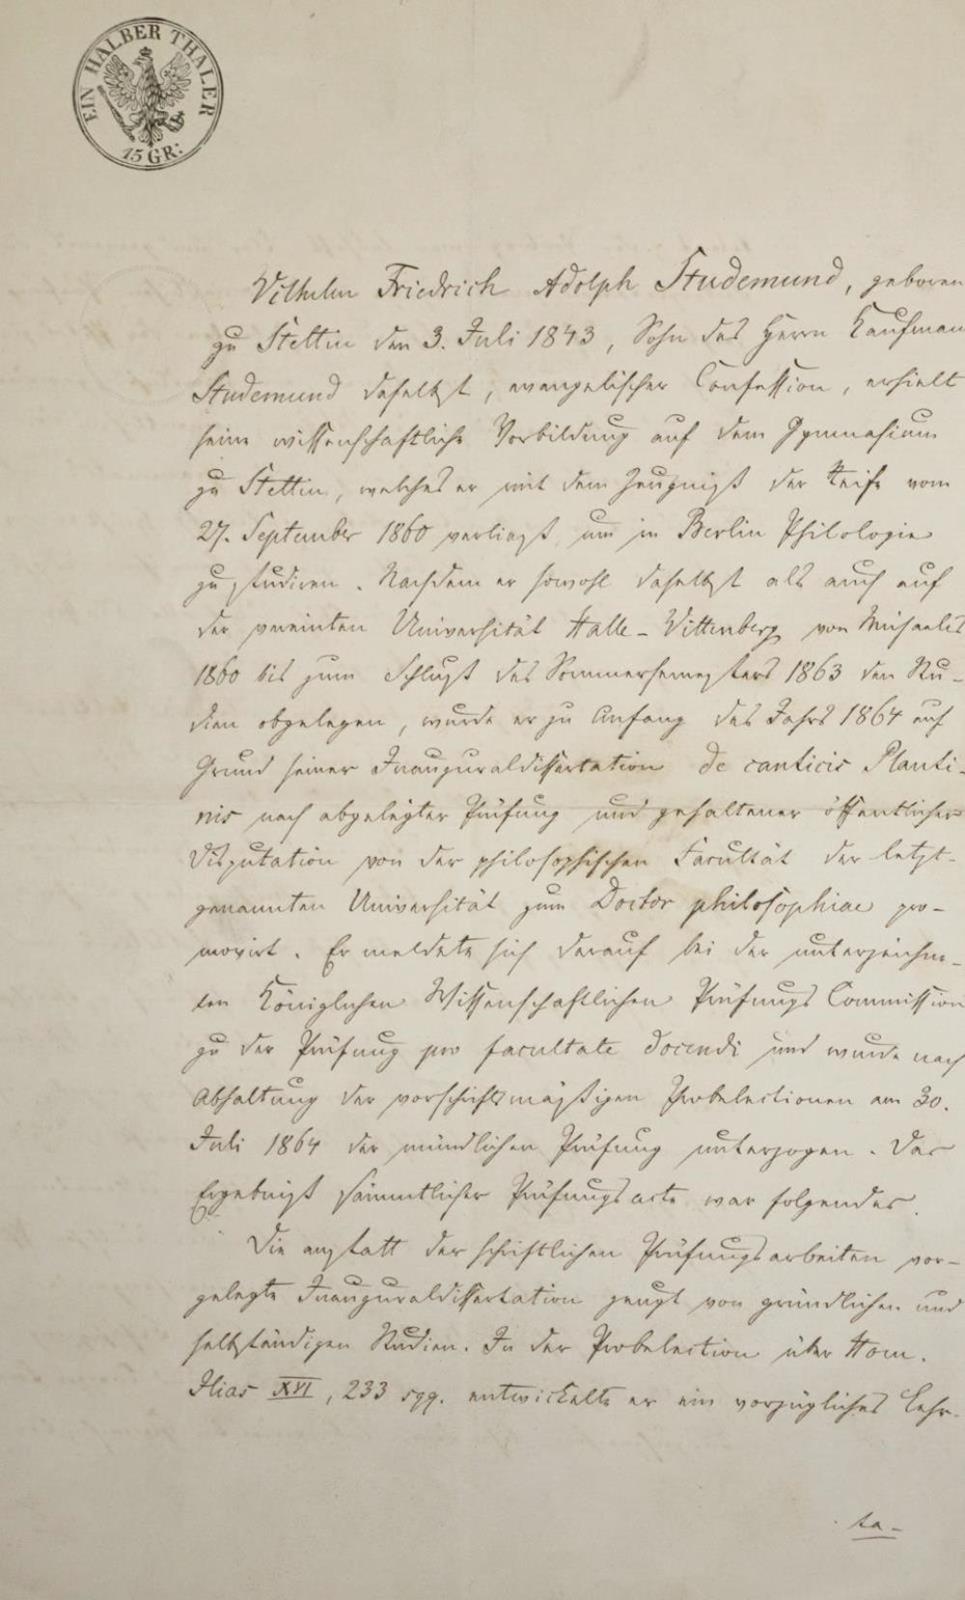 EIN HALBER THALER
15 GR:
Wilhelm Friedrich Adolph Studemund, geboren
zu Stettin den 3. Juli 1843, Sohn des Herrn Kaufman
Studemund daselbst, evangelischer Confession, erhielt
seine wissenschaftliche Vorbildung auf dem Gymnasium
zu Stettin, welches er mit dem Zeugniß der Reife vom
27. September 1860 verließ, um in Berlin Philologie
zu studiren. Nachdem er sowohl daselbst als auch auf
der vereinten Universität Halle-Wittenberg von Michaelis
1860 bis zum Schluß des Sommersemesters 1863 den Stu-
dien obgelegen, wurde er zu Anfang des Jahrs 1864 auf
Grund seiner Inauguraldissertation de canticis Plauti-
nis nach abgelegter Prüfung und gehaltener öffentlicher
Disputation von der philosophischen Facultät der letzt-
genannten Universität zum Doctor philosophiae pro-
movirt. Er meldete sich darauf bei der unterzeichne-
ten Königlichen Wissenschaftlichen Prüfungs Commission
zu der Prüfung pro facultate docendi und wurde nach
Abhaltung der vorschriftsmäßigen Probelectionen am 30.
Juli 1864 der mündlichen Prüfung unterzogen. Das
Ergebniß sämmtlicher Prüfungsacte war folgendes.
Die anstatt der schriftlichen Prüfungsarbeiten vor-
gelegte Inauguraldissertation zeugt von gründlichen und
selbständigen Studien. In der Probelection über Hom.
Ilias XVI, 233 sqq. entwickelte er ein vorzügliches Lehr-
ta-